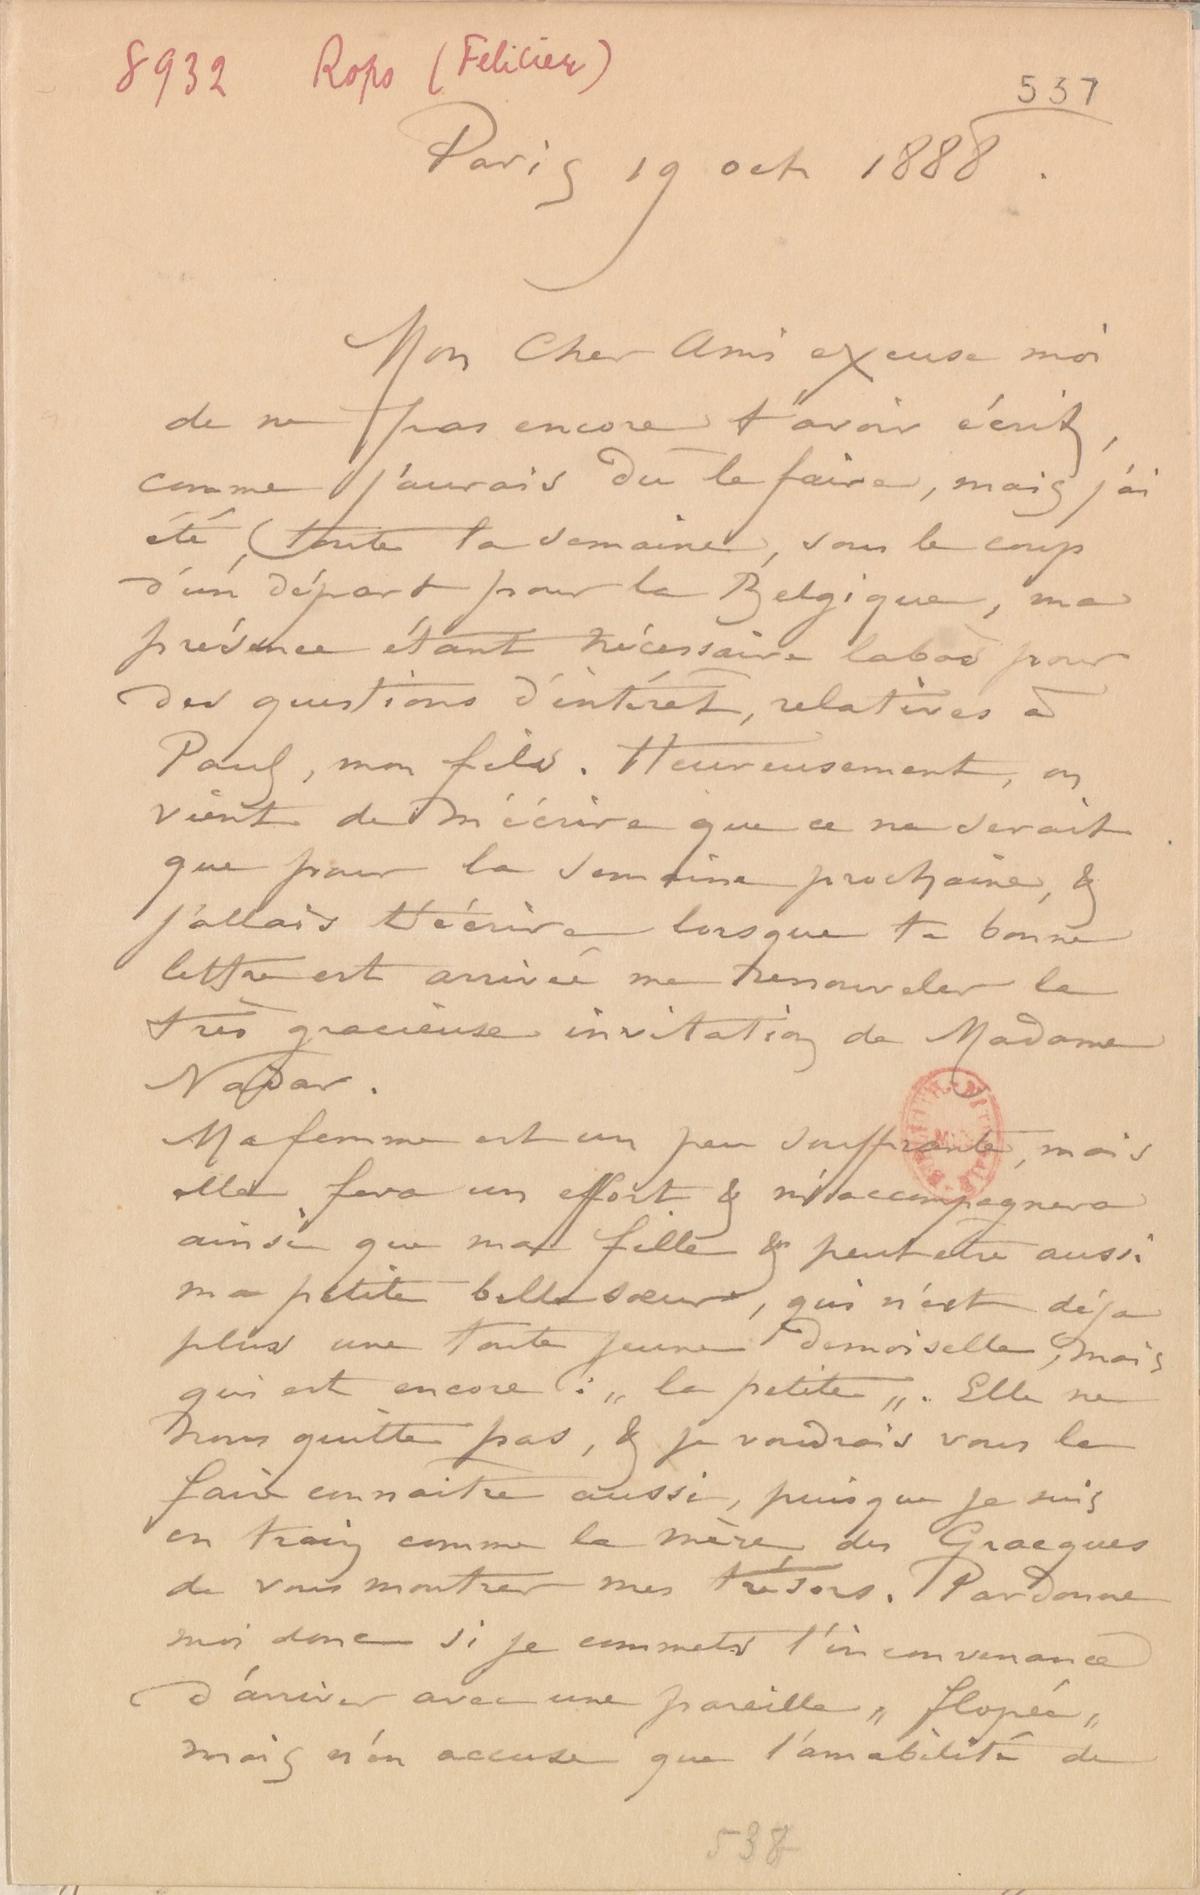 8932 Rops (Félicien)
537
Paris 19 oct 1888.
Mon Cher Ami excuse moi
de ne pas encore t'avoir écrit,
comme j'aurais dû le faire, mais j'ai
été, toute la semaine, sous le coup
d'un départ pour la Belgique, ma
présence étant nécessaire labas pour
des questions d'intérêt, relatives à
Paul, mon fils. Heureusement, on
vient de m'écrire que ce ne serait
que pour la semaine prochaine, &
j'allais t'écrire lorsque ta bonne
lettre est arrivée me renouveler la
très gracieuse invitation de Madame
Nadar.
Ma femme est un peu souffrante, mais
elle fera un effort & m'accompagnera
ainsi que ma fille & peut etre aussi
ma petite belle sœur, qui n'est déja
plus une toute jeune demoiselle, mais
qui est encore : „ la petite „. Elle ne
nous quitte pas, & je voudrais vous la
faire connaitre aussi, puisque je suis
en train comme la mère des Gracques
de vous montrer mes trésors. Pardonne
moi donc si je commets l'inconvenance
d'arriver avec une pareille „ flopée „
mais n'en accuse que l'amabilité de
538